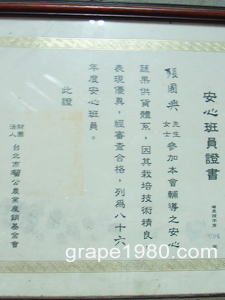 安心班員證書
張國興 先生
女士 參加本會輔導之安心
蔬果供貨體系,因其栽培技術精良
表現優異,經審查合格,列為八十六
年度安心班員。
此證
財團
法人 台北市瑠公農業產銷基金會
grape1980.com